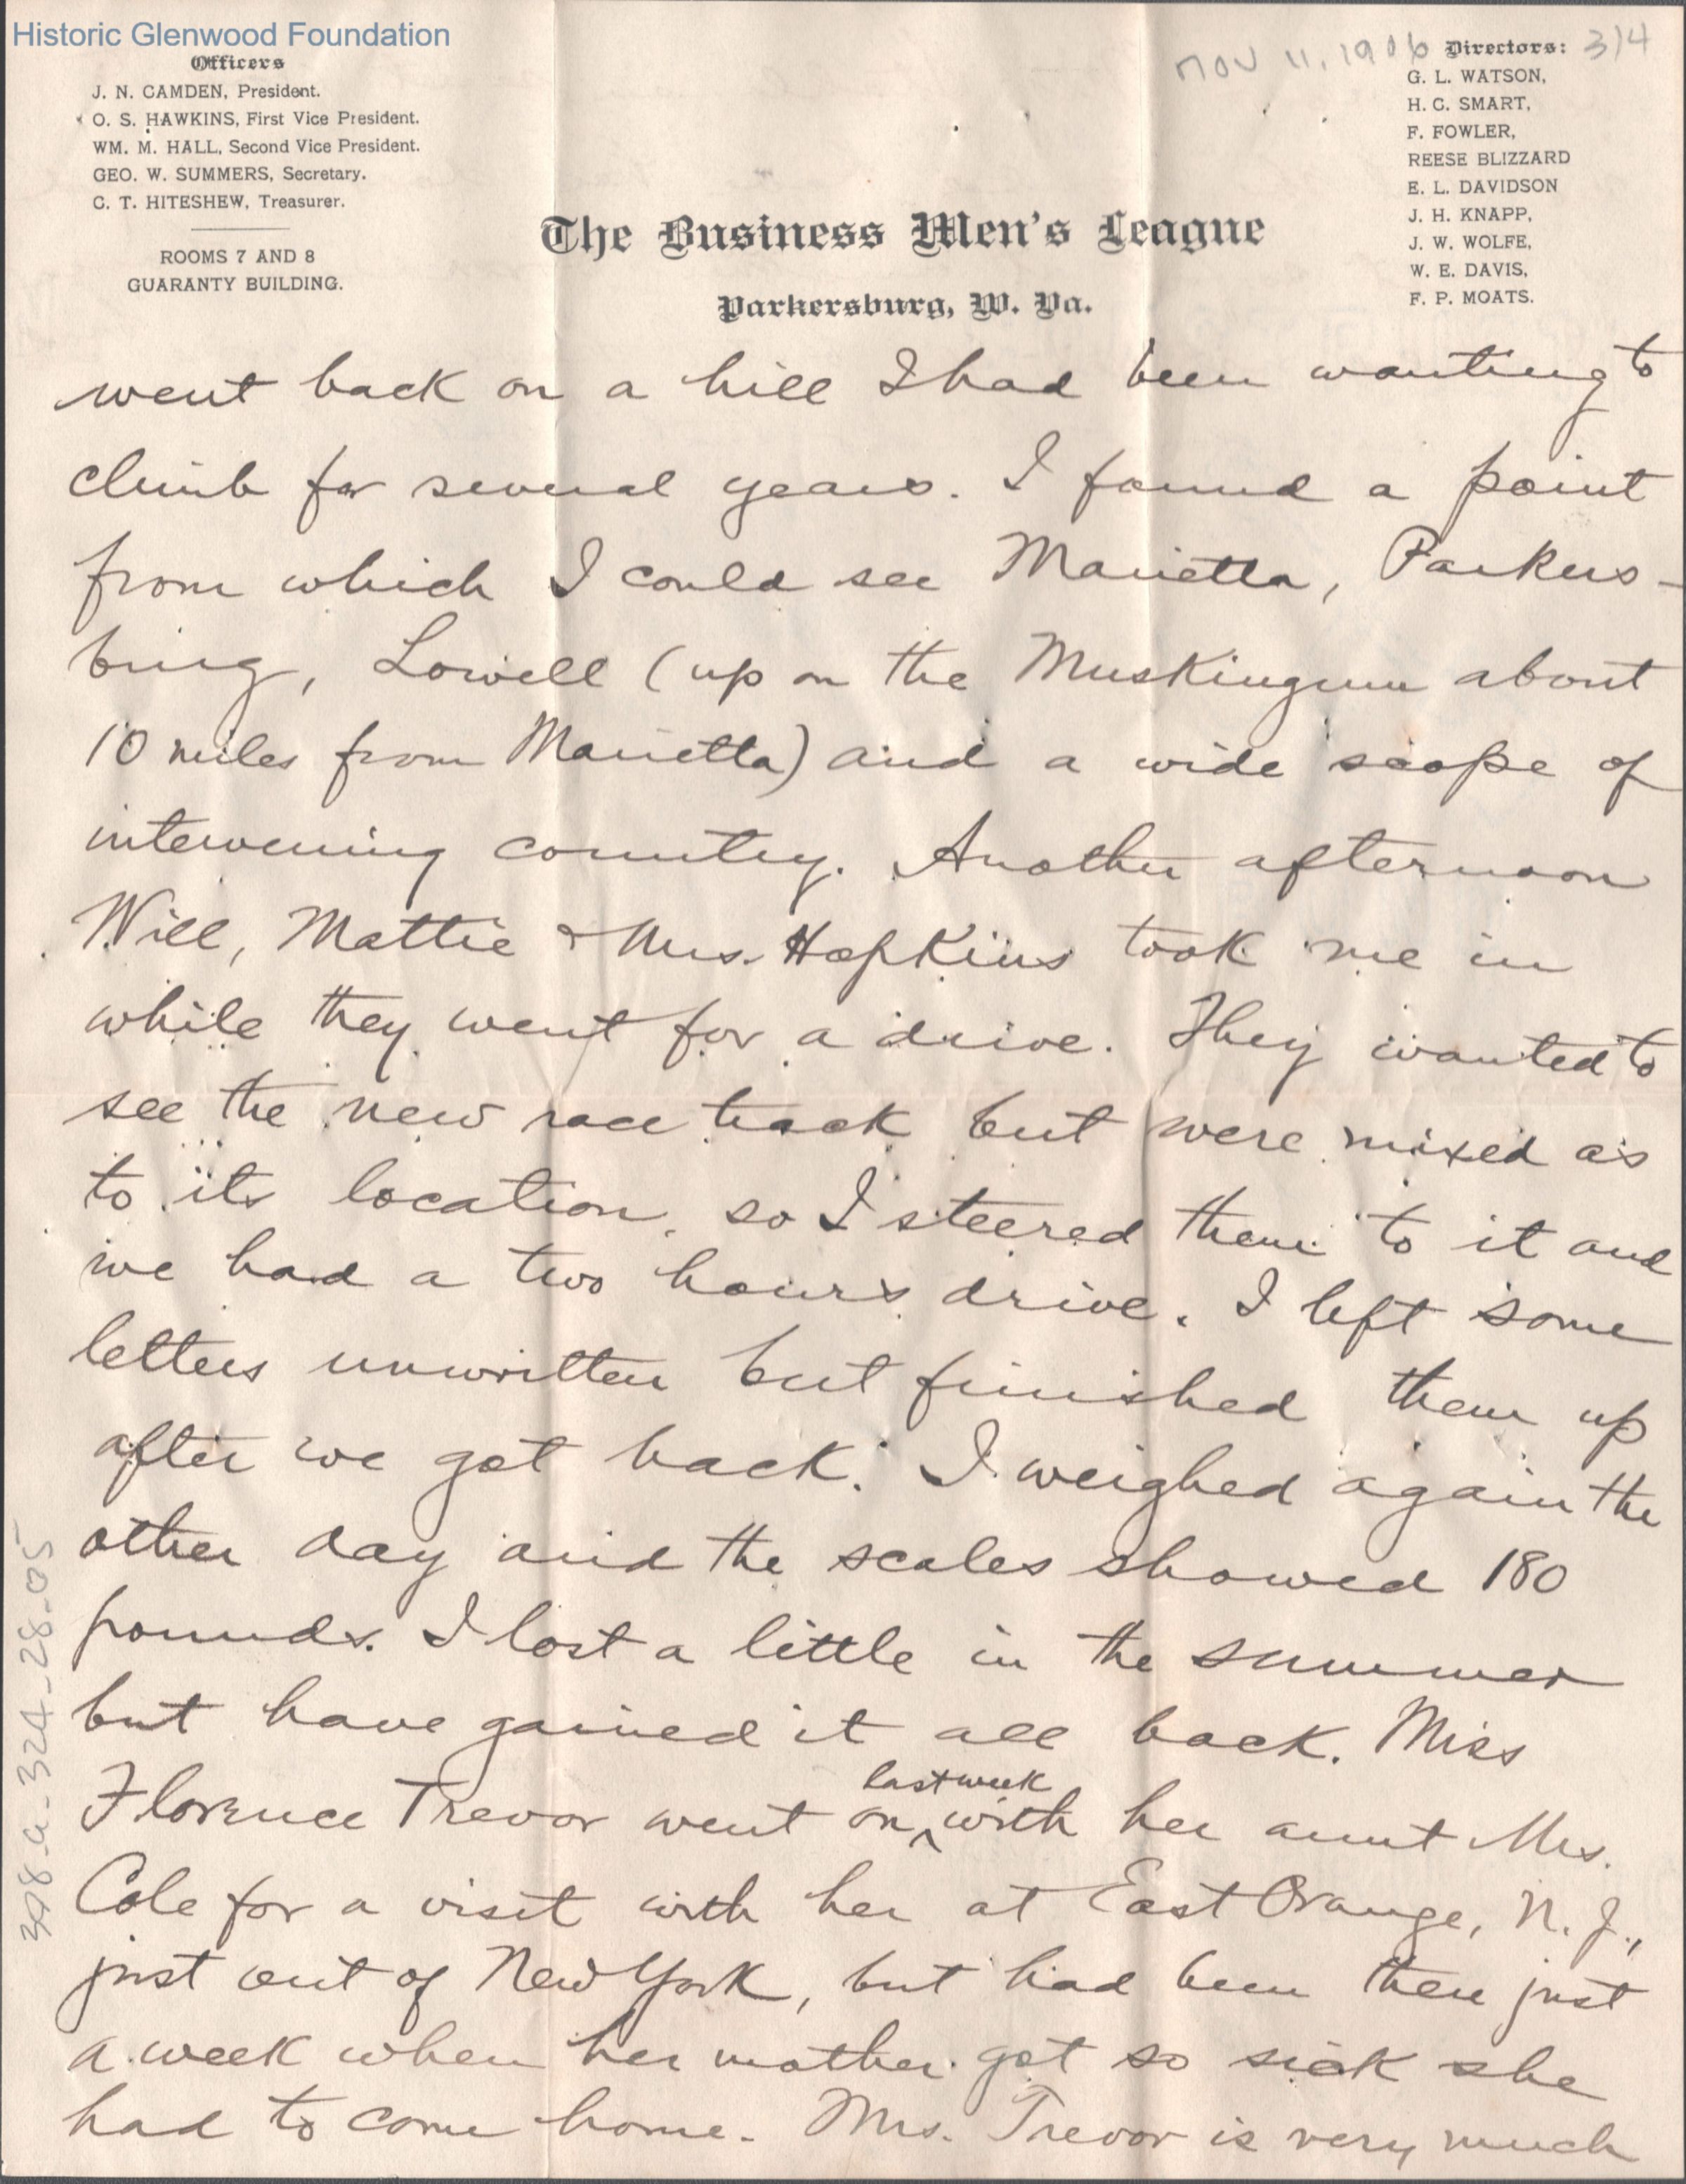 Historic Glenwood Foundation
Nov 11, 1906 3/4
Officers
J. N. CAMDEN, President.
O. S. HAWKINS, First Vice President.
WM. M. HALL, Second Vice President.
GEO. W. SUMMERS, Secretary.
C. T. HITESHEW, Treasurer.
ROOMS 7 AND 8
GUARANTY BUILDING.
Directors:
G. L. WATSON,
H. C. SMART,
F. FOWLER,
REESE BLIZZARD
E. L. DAVIDSON
J. H. KNAPP,
J. W. WOLFE,
W. E. DAVIS,
F. P. MOATS.
The Business Men's League
Parkersburg, W. Va.
went back on a hill I had been wanting to
climb for several years. I found a point
from which I could see Marietta, Parkers-
burg, Lowell (up on the Muskingum about
10 miles from Marietta) and a wide scope of
intervening country. Another afternoon
Will, Mattie & Mrs. Hopkins took me in
while they went for a drive. They wanted to
see the new race track but were mixed as
to its location, so I steered them to it and
we had a two hours drive. I left some
letters unwritten but finished them up
after we got back. I weighed again the
other day and the scales showed 180
pounds. I lost a little in the summer
but have gained it all back. Miss
Florence Trevor went on last week with her aunt Mrs.
Cole for a visit with her at East Orange, N. J.,
just out of New York, but had been there just
a week when her mother got so sick she
had to come home. Mrs. Trevor is very much
398-a-324-28-05